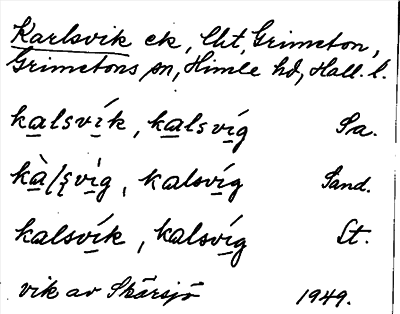 Karlsvik ek, Cht, Grimeton,
Grimetons sn, Himle hd, Hall. l.
kalsvík, kalsvíg Sa.
kàlsvig, kalsvíg Sand.
kalsvík, kalsvíg St.
vik av Skärsjö 1949.